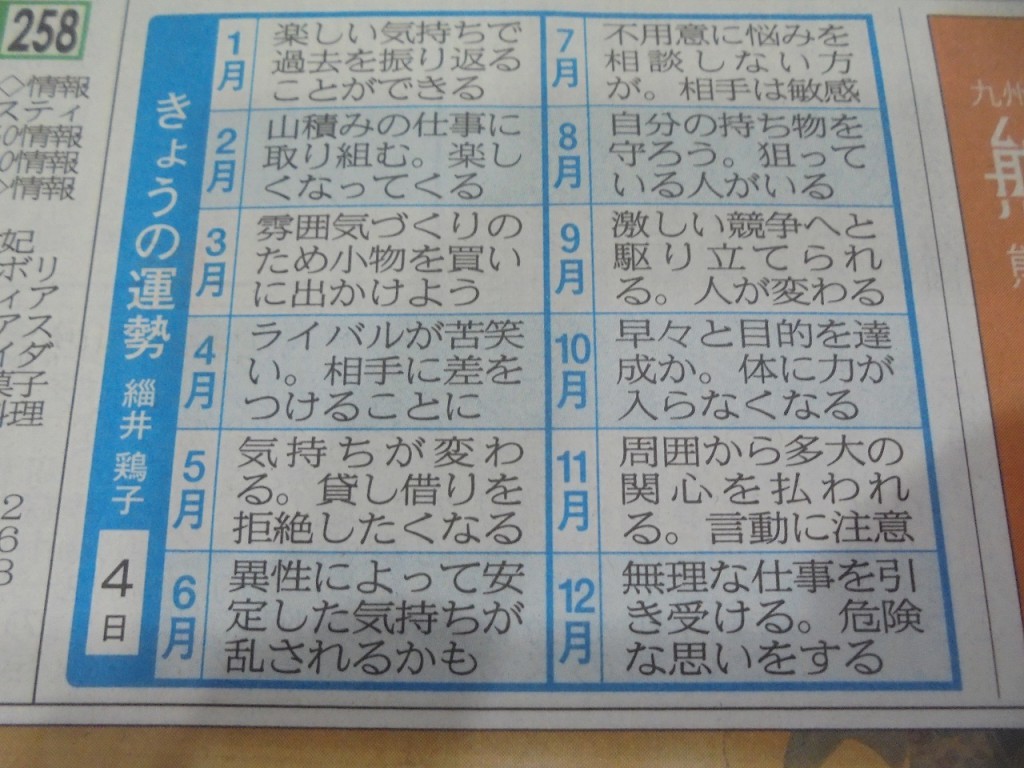 258
情報
スティ
情報
0情報
情報
妃
ボリ
ィア
アス
イダ
菓子
料理
2
6
3
きょうの運勢
緇井 鶏子
4日
1月
楽しい気持ちで
過去を振り返る
ことができる
2月
山積みの仕事に
取り組む。楽し
くなってくる
3月
雰囲気づくりの
ため小物を買い
に出かけよう
4月
ライバルが苦笑
い。相手に差を
つけることに
5月
気持ちが変わ
る。貸し借りを
拒絶したくなる
6月
異性によって安
定した気持ちが
乱されるかも
7月
不用意に悩みを
相談しない方
が。相手は敏感
8月
自分の持ち物を
守ろう。狙って
いる人がいる
9月
激しい競争へと
駆り立てられ
る。人が変わる
10月
早々と目的を達
成か。体に力が
入らなくなる
11月
周囲から多大の
関心を払われ
る。言動に注意
12月
無理な仕事を引
き受ける。危険
な思いをする
九州